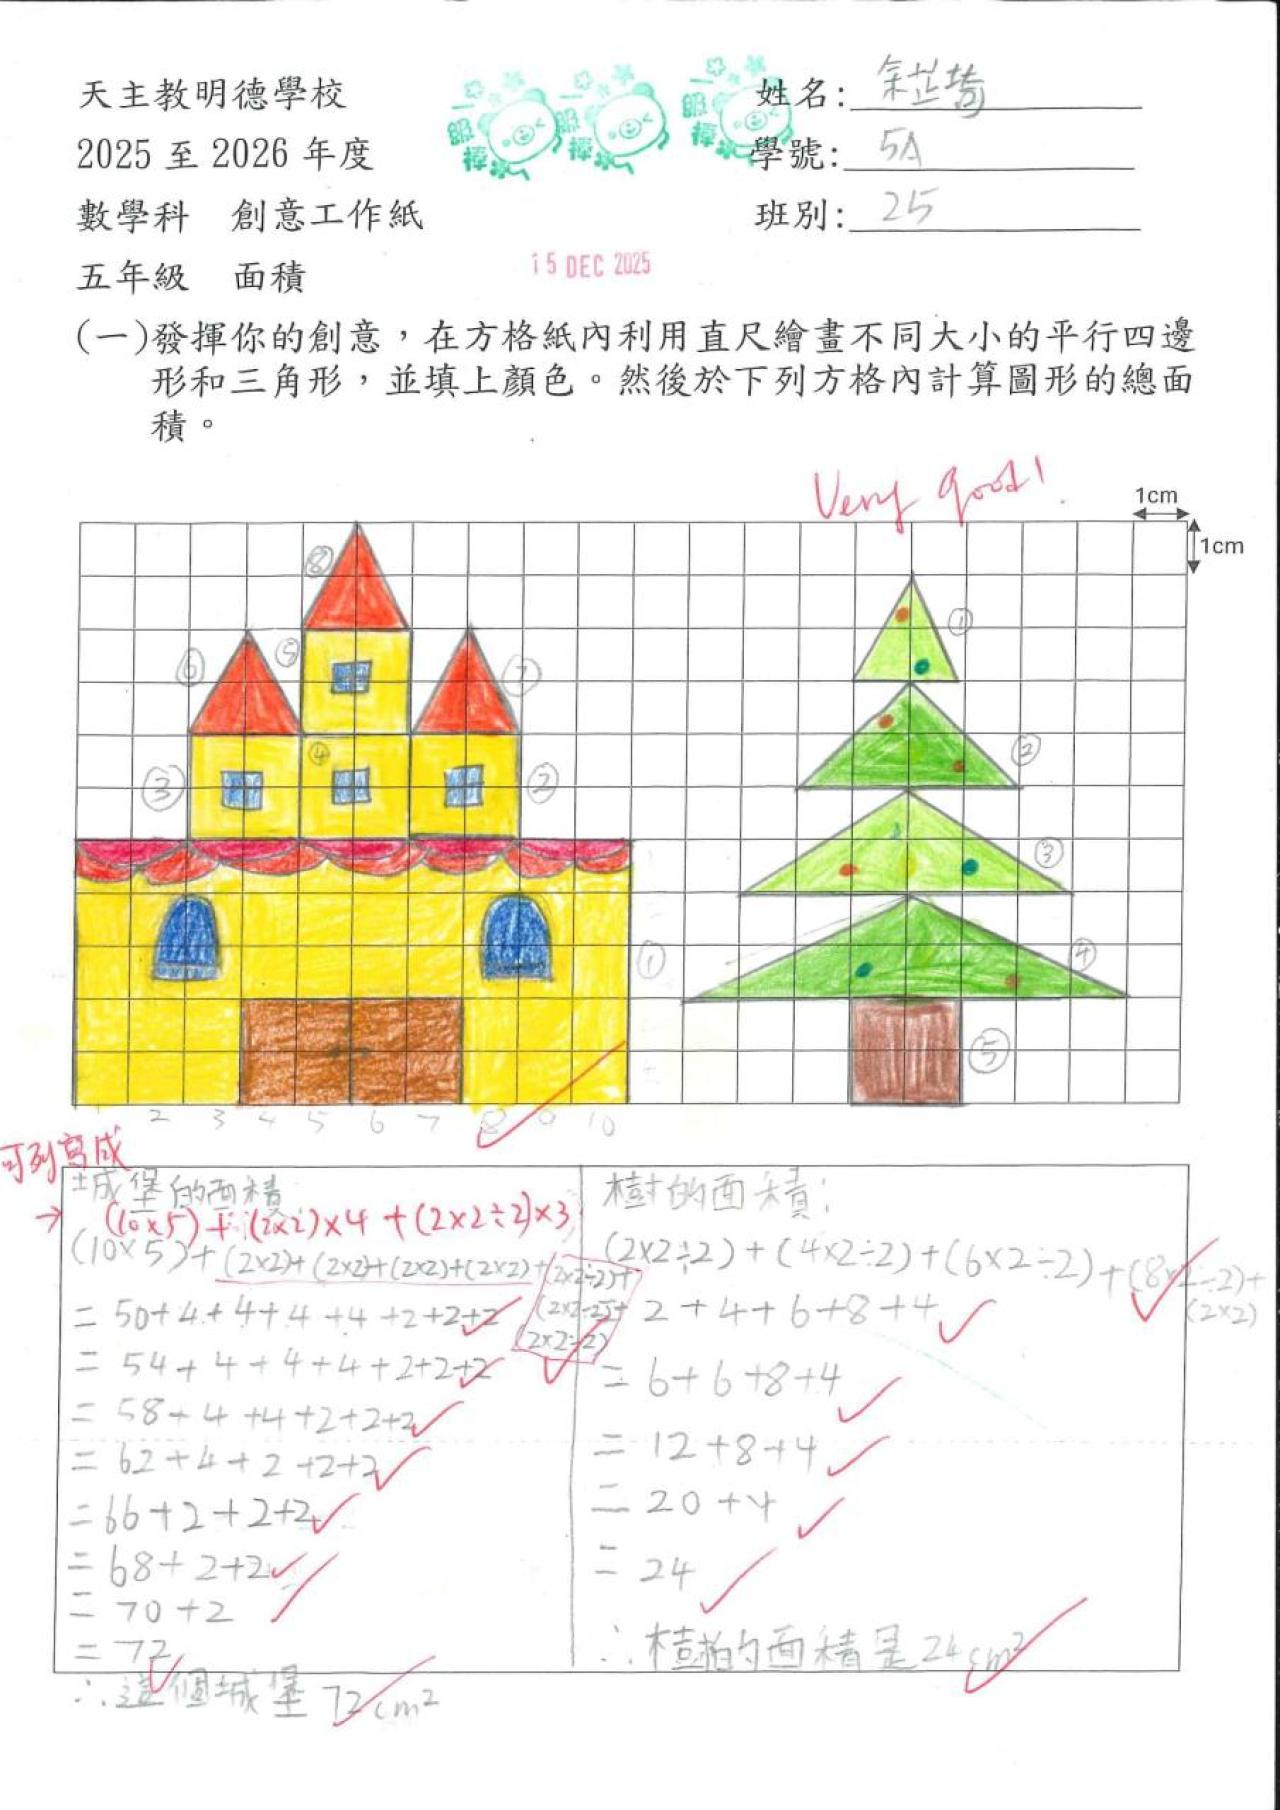 天主教明德學校
2025 至 2026 年度
數學科　創意工作紙
五年級　面積
姓名:
學號: 5A
班別: 25
15 DEC 2025
(一)發揮你的創意，在方格紙內利用直尺繪畫不同大小的平行四邊
形和三角形，並填上顏色。然後於下列方格內計算圖形的總面
積。
Very good!
1cm
1cm
⑧
①
⑥
⑤
⑦
②
③
④
②
③
①
④
⑤
2 3 4 5 6 7 8 9 10
可列寫成
城堡的面積:
→ (10×5)+(2×2)×4+(2×2÷2)×3
(10×5)+(2×2)+(2×2)+(2×2)+(2×2)+(2×2÷2)+
(2×2÷2)+
(2×2÷2)
=50+4+4+4+4+2+2+2
=54+4+4+4+2+2+2
=58+4+4+2+2+2
=62+4+2+2+2
=66+2+2+2
=68+2+2
=70+2
=72
∴這個城堡72cm²
樹的面積:
(2×2÷2)+(4×2÷2)+(6×2÷2)+(8×2÷2)+
(2×2)
2+4+6+8+4
=6+6+8+4
=12+8+4
=20+4
=24
∴樹的面積是24cm²